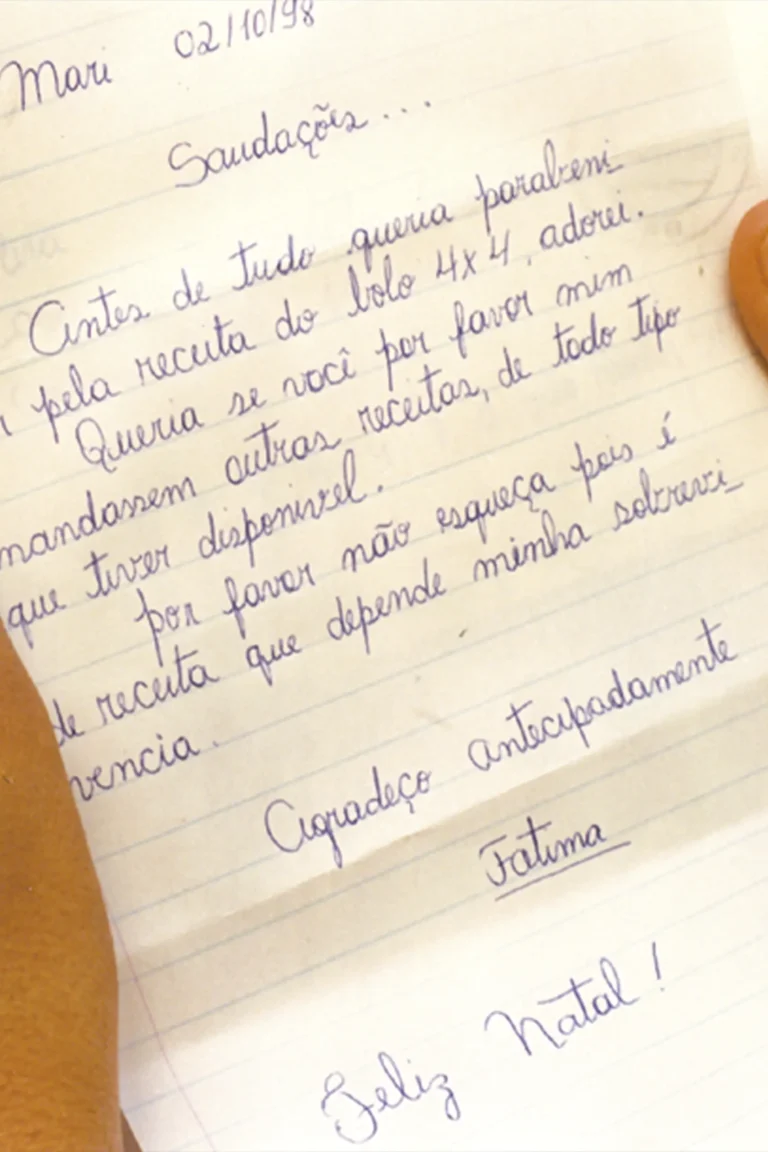 Mari 02/10/98
Saudações...
Antes de tudo queria parabeni
pela receita do bolo 4x4, adorei.
Queria se você por favor mim
mandassem outras receitas, de todo tipo
que tiver disponivel.
por favor não esqueça pois é
de receita que depende minha sobrevi
vencia.
Agradeço antecipadamente
Fatima
Feliz Natal!